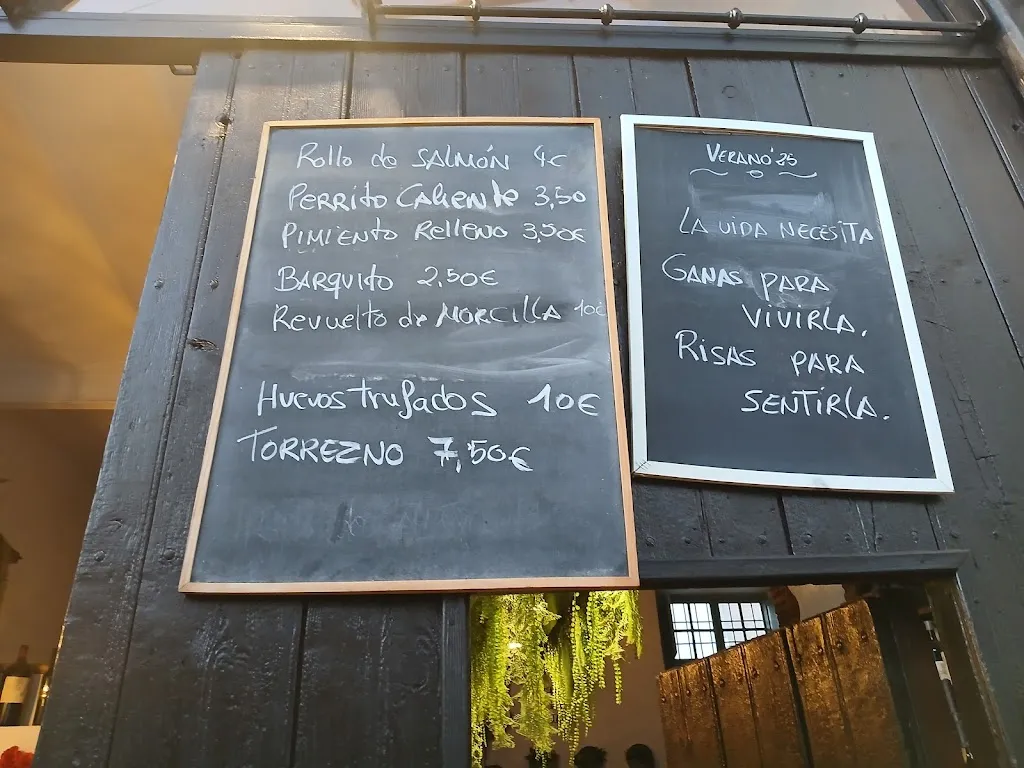 Rollo de SALMÓN 4€
PERRITO CALIENTE 3,50
PIMIENTO Relleno 3,50€
BARQUITO 2,50€
Revuelto de MORCILLA 10€
Huevos trufados 10€
TORREZNO 7,50€
VERANO'25
LA VIDA NECESITA
GANAS PARA
VIVIRLA.
RISAS PARA
SENTIRLA.